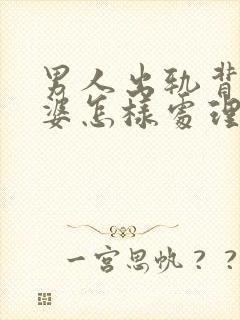 男人出轨背
婆怎样處理
一宫思帆？？